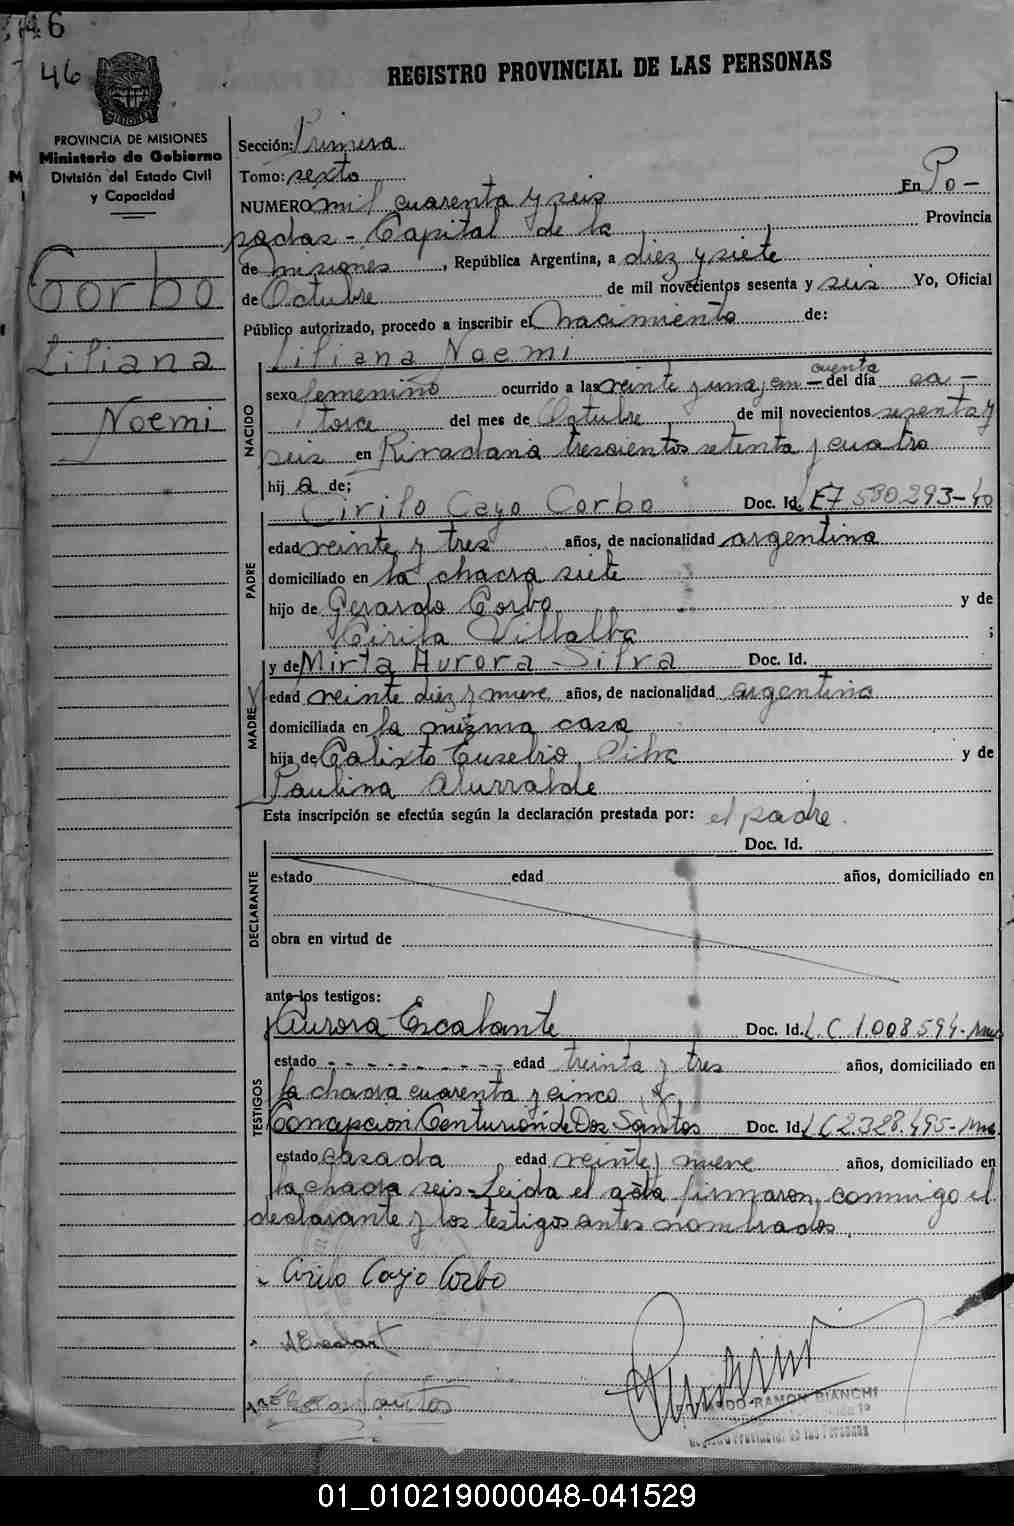 46
46
REGISTRO PROVINCIAL DE LAS PERSONAS
PROVINCIA DE MISIONES
Ministerio de Gobierno
División del Estado Civil
y Capacidad
Corbo
Liliana
Noemi
Sección: Primera
Tomo: sexto
NUMERO mil cuarenta y seis En Po-
sadas - Capital de la Provincia
de misiones, República Argentina, a diez y siete
de Octubre de mil novecientos sesenta y seis Yo, Oficial
Público autorizado, procedo a inscribir el Nacimiento de:
Liliana Noemi
NACIDO
cuenta
sexo femenino ocurrido a las veinte y una, cin- del día ca-
torce del mes de Octubre de mil novecientos sesenta y
seis en Rivadavia trescientos setenta y cuatro
hij a de:
PADRE
Cirilo Cayo Corbo Doc. Id. LE7.580.293-40
edad veinte y tres años, de nacionalidad argentina
domiciliado en la chacra siete
hijo de Gerardo Corbo y de
Cirila Villalba ;
MADRE
y de Mirta Aurora Silva Doc. Id.
edad veinte diez y nueve años, de nacionalidad argentina
domiciliada en la misma casa
hija de Calixto Eusebio Silva y de
Paulina Alurralde
Esta inscripción se efectúa según la declaración prestada por: el padre.
DECLARANTE
Doc. Id.
estado edad años, domiciliado en
obra en virtud de
ante los testigos:
TESTIGOS
Aurora Escalante Doc. Id. L.C 1.008.594-
estado - - - - - - - - - edad treinta y tres años, domiciliado en
la chacra cuarenta y cinco y
Concepcion Centurión de Dos Santos Doc. Id. LC2.328.495-
estado casada edad veinte y nueve años, domiciliado en
la chacra seis=Leida el acta firmaron conmigo el
declarante y los testigos antes nombrados.
Cirilo Cayo Corbo
RAMON BIANCHI
Registro Provincial de las Personas
01_010219000048-041529